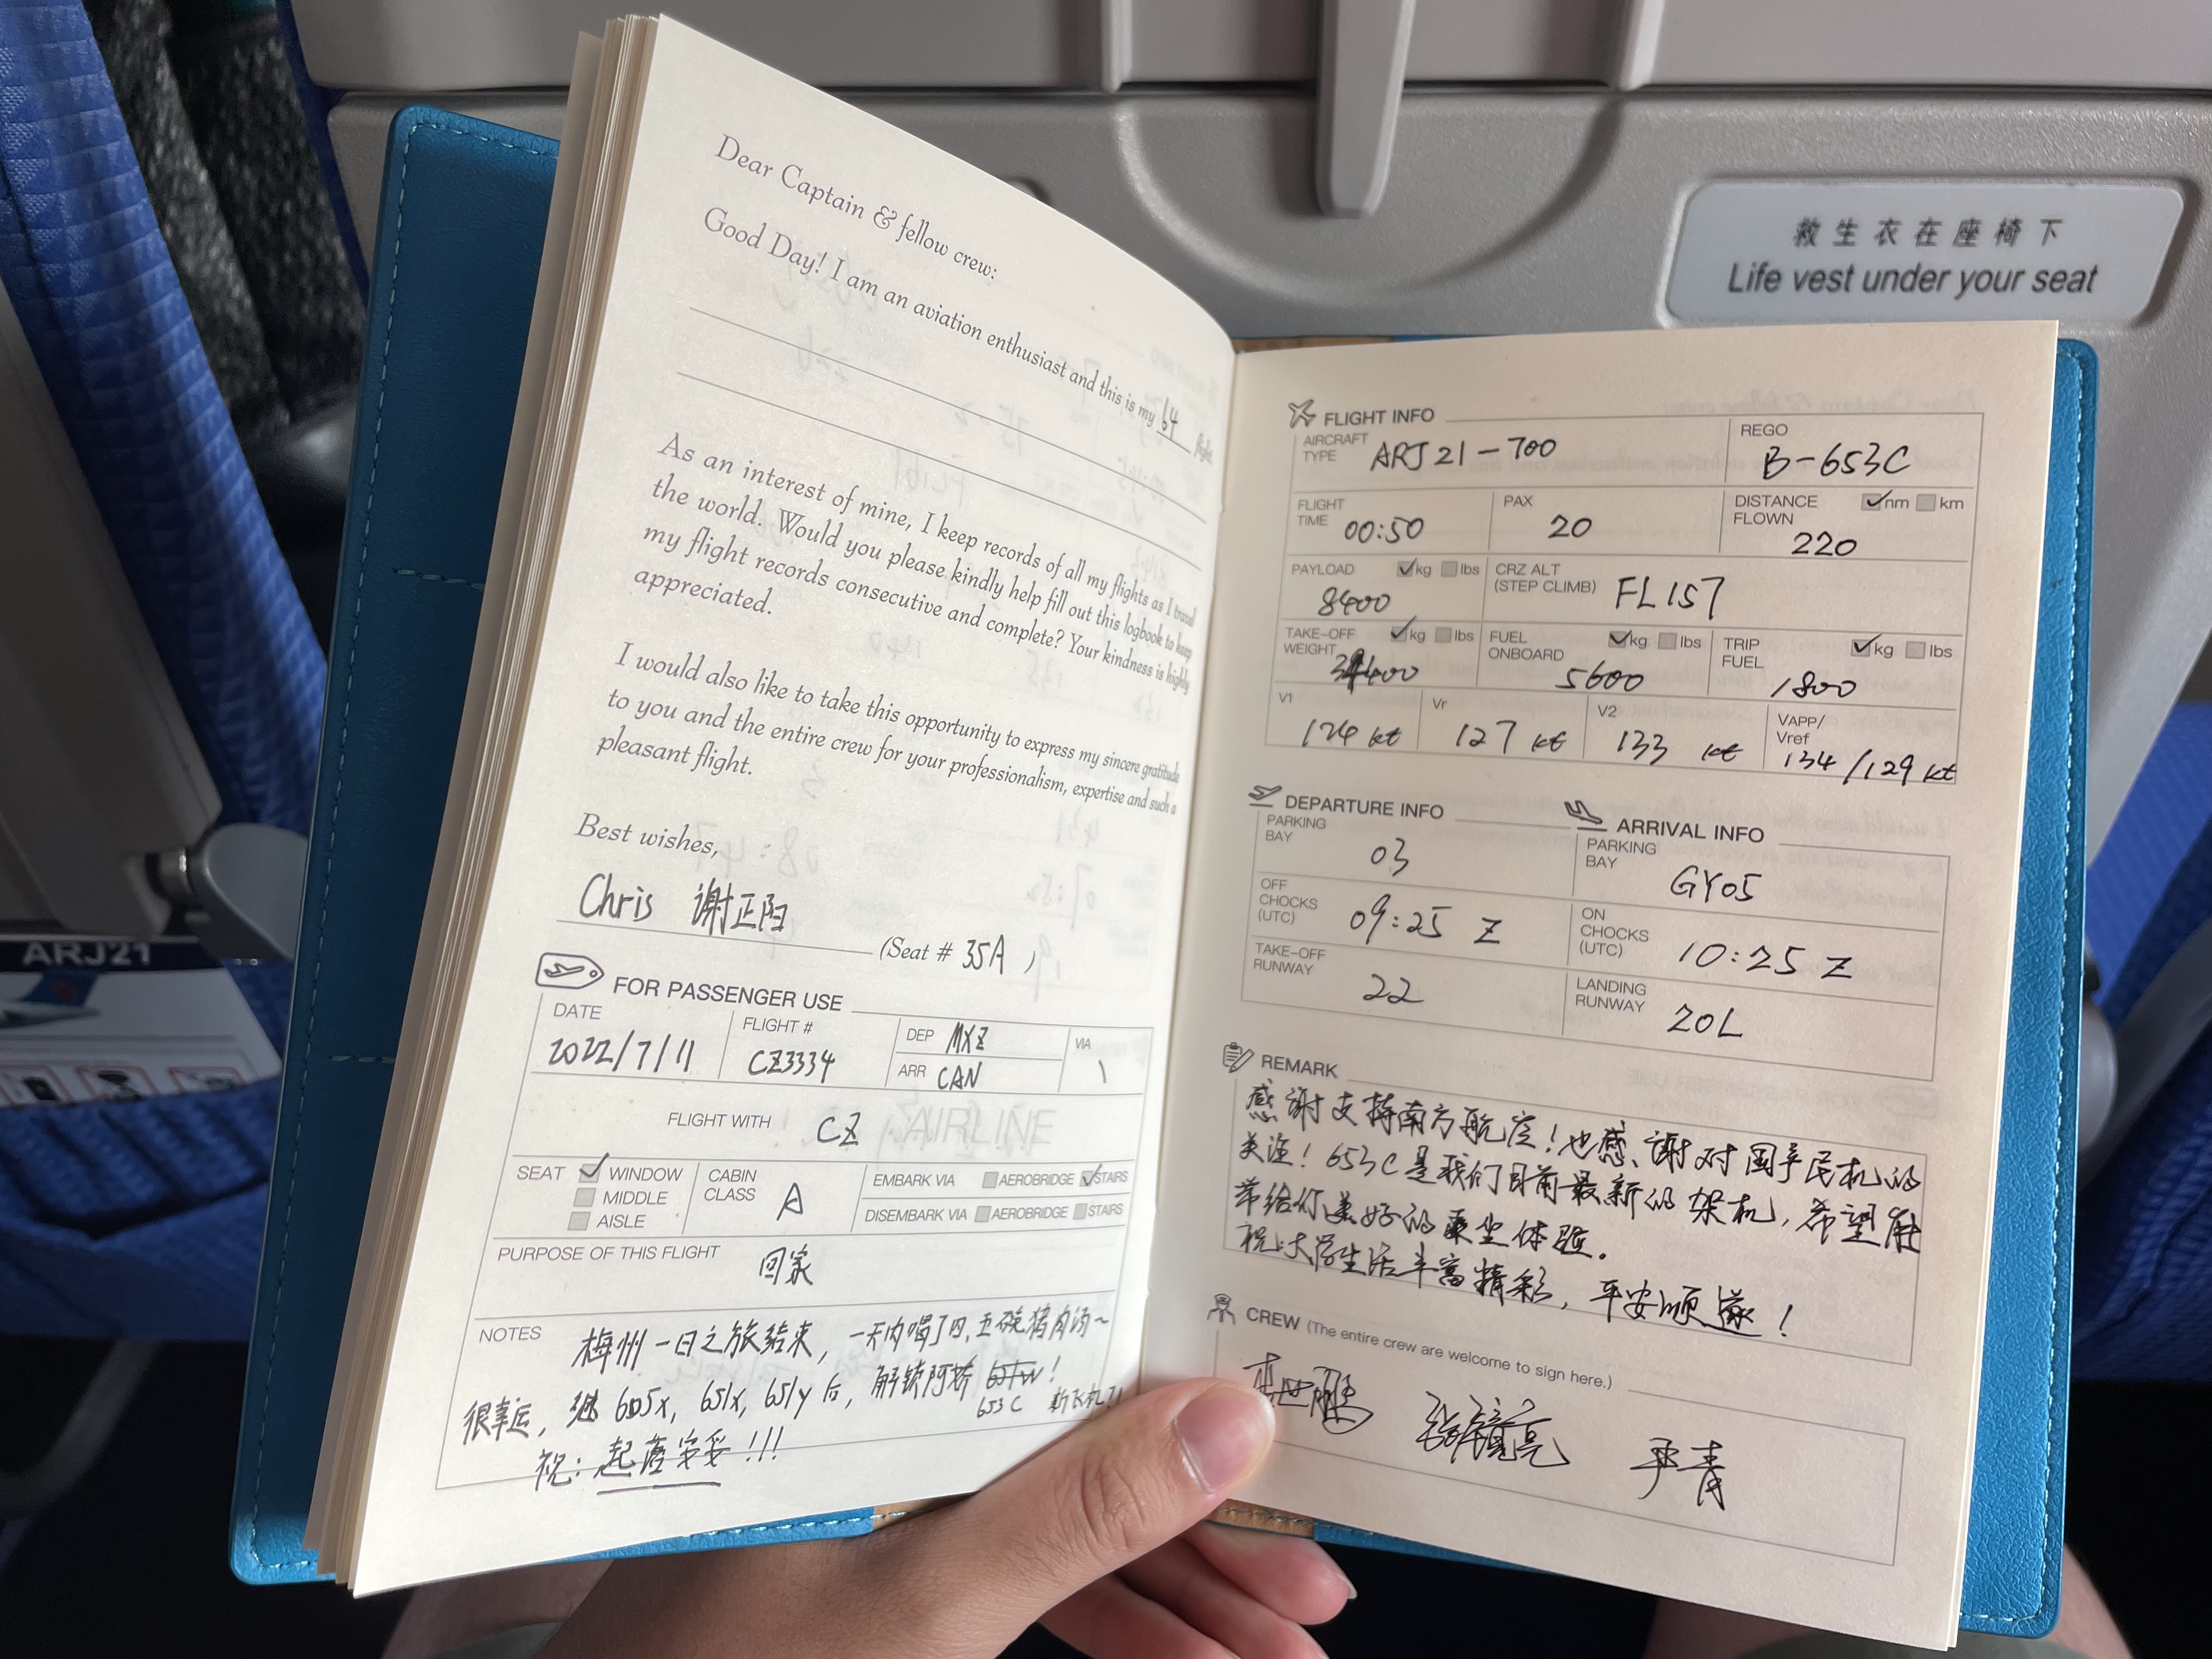 救生衣在座椅下
Life vest under your seat
ARJ21
Dear Captain & fellow crew:
Good Day! I am an aviation enthusiast and this is my 64
As an interest of mine, I keep records of all my flights as I travel
the world. Would you please kindly help fill out this logbook to keep
my flight records consecutive and complete? Your kindness is highly
appreciated.
I would also like to take this opportunity to express my sincere gratitude
to you and the entire crew for your professionalism, expertise and such a
pleasant flight.
Best wishes,
Chris 谢正阳
(Seat # 35A )
FOR PASSENGER USE
DATE 2022/7/11
FLIGHT # CZ3334
DEP MXZ
ARR CAN
VIA \
FLIGHT WITH CZ AIRLINE
SEAT WINDOW
MIDDLE
AISLE
CABIN
CLASS A
EMBARK VIA AEROBRIDGE STAIRS
DISEMBARK VIA AEROBRIDGE STAIRS
PURPOSE OF THIS FLIGHT 回家
NOTES 梅州一日之旅结束，一天内喝了四,五碗猪肉汤~
很幸运，继 605x, 651x, 651y 后，解锁阿娇 !
653C 新飞机!!
祝: 起落安妥!!!
FLIGHT INFO
AIRCRAFT
TYPE ARJ21-700
REGO
B-653C
FLIGHT
TIME 00:50
PAX
20
DISTANCE nm km
FLOWN
220
PAYLOAD kg lbs
8400
CRZ ALT
(STEP CLIMB) FL157
TAKE-OFF kg lbs
WEIGHT
FUEL kg lbs
ONBOARD
5600
TRIP kg lbs
FUEL
1800
V1
124 kt
Vr
127 kt
V2
133 kt
VAPP/
Vref
134/129 kt
DEPARTURE INFO
PARKING
BAY
03
OFF
CHOCKS
(UTC) 09:25 Z
TAKE-OFF
RUNWAY
22
ARRIVAL INFO
PARKING
BAY
GY05
ON
CHOCKS
(UTC) 10:25 Z
LANDING
RUNWAY 20L
REMARK
感谢支持南方航空！也感谢对国产民机的
关注！653C是我们目前最新的架机，希望能
带给你美好的乘坐体验。
祝:大学生活丰富精彩，平安顺遂！
CREW (The entire crew are welcome to sign here.)
尹青